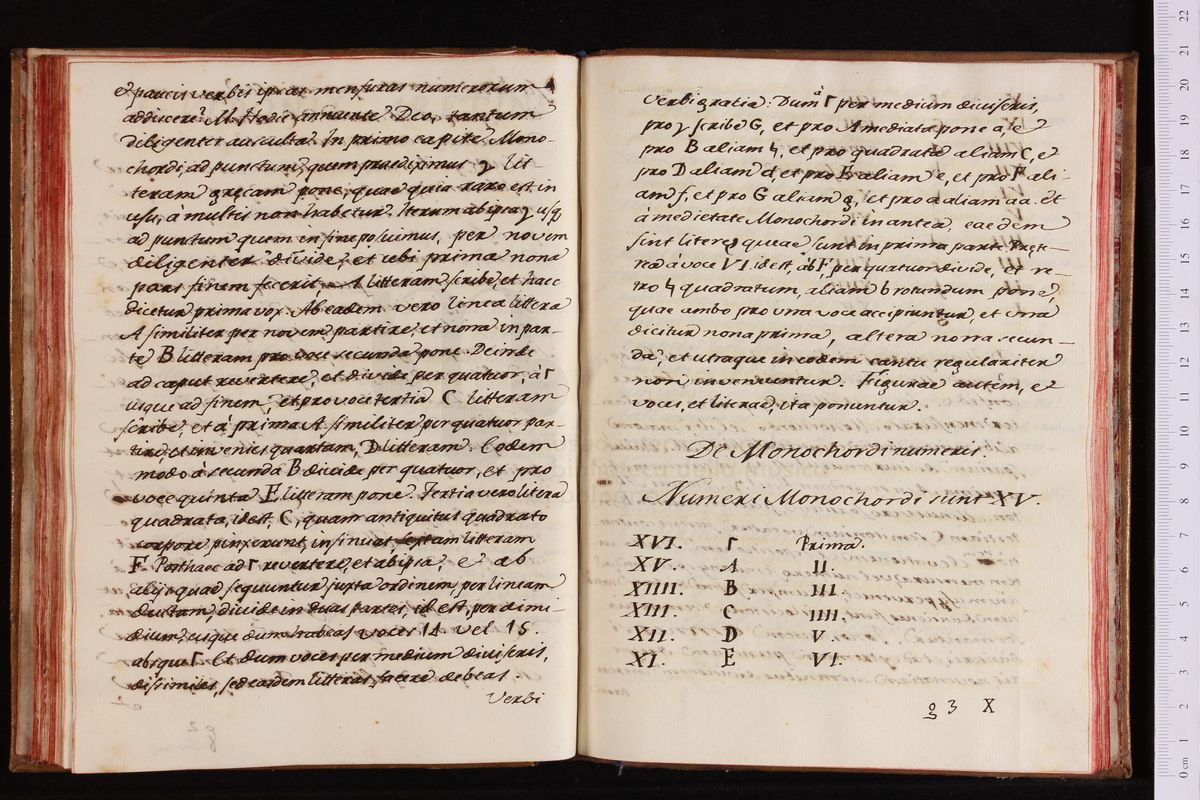 & paucis verbis ipsas mensuras numerorum
adducere? M. Hodie annuente Deo, tantum
diligenter ausculta. In primo capite Mono-
chordi, ad punctum, quem praediximus γ lit-
teram gręcam pone, quae quia raro est in
usu, a multis non habetur. Iterum ab ipsa γ usq
ad punctum quem in fine posuimus, per novem
diligenter divide, et ubi prima nona
pars finem fecerit A litteram scribe, et haec
dicetur prima vox. Ab eadem vero linea littera
A similiter per novem partire, et nona in par-
te B litteram pro voce secunda pone. Deinde
ad caput revertere, et divide per quatuor, à Γ
usque ad finem, et pro voce tertia C litteram
scribe, et à prima A similiter per quatuor par-
tire, et invenies quartam, D litteram. Eodem
modo à secunda B divide per quatuor, et pro
voce quinta E litteram pone. Tertia vero litera
quadrata, id est, C, quam antiquitus quadrato
corpore pinxerunt, insinuat sextam litteram
F. Posthaec ad Γ revertere, et ab ipsa, e ab
alijs quad sequuntur juxta ordinem, per lineam
ductam, divide in duas partes, id est, per dimi-
dium, usque dum habeas voces 14. vel 15.
absque Γ. Et dum voces per medium diviseris,
dissimiles, sed easdem litteras facere debeas.
Verbi
Verbi gratia: Dum à Γ per medium diviseris,
pro γ scribe G, et pro A mediata pone a, e
pro B aliam ♮, et pro quadrata aliam C, e
pro D aliam d, et pro E aliam e, et pro F ali-
am f, et pro G aliam g, et pro a aliam aa. et
à medietate Monochordi in antea, eaedem
sint literę queae sunt in prima parte. Pręte-
rea à voce VI. id est, ab F per quatuor divide, et re-
tro ♮ quadratum, aliam b rotundum pone,
quae ambo pro una voce accipiuntur, et una
dicitur nona prima, altera nona secun-
da, et utraque in eodem cantu regulariter
non invenientur. Figurae autem, e
voces, et literae, ita ponuntur.
De Monochordi numeris.
Numeri Monochordi sunt XV.
XVI. Γ Prima.
XV. A II.
XIIII. B III.
XIII. C IIII.
XII. D V.
XI. E VI.
g 3 X